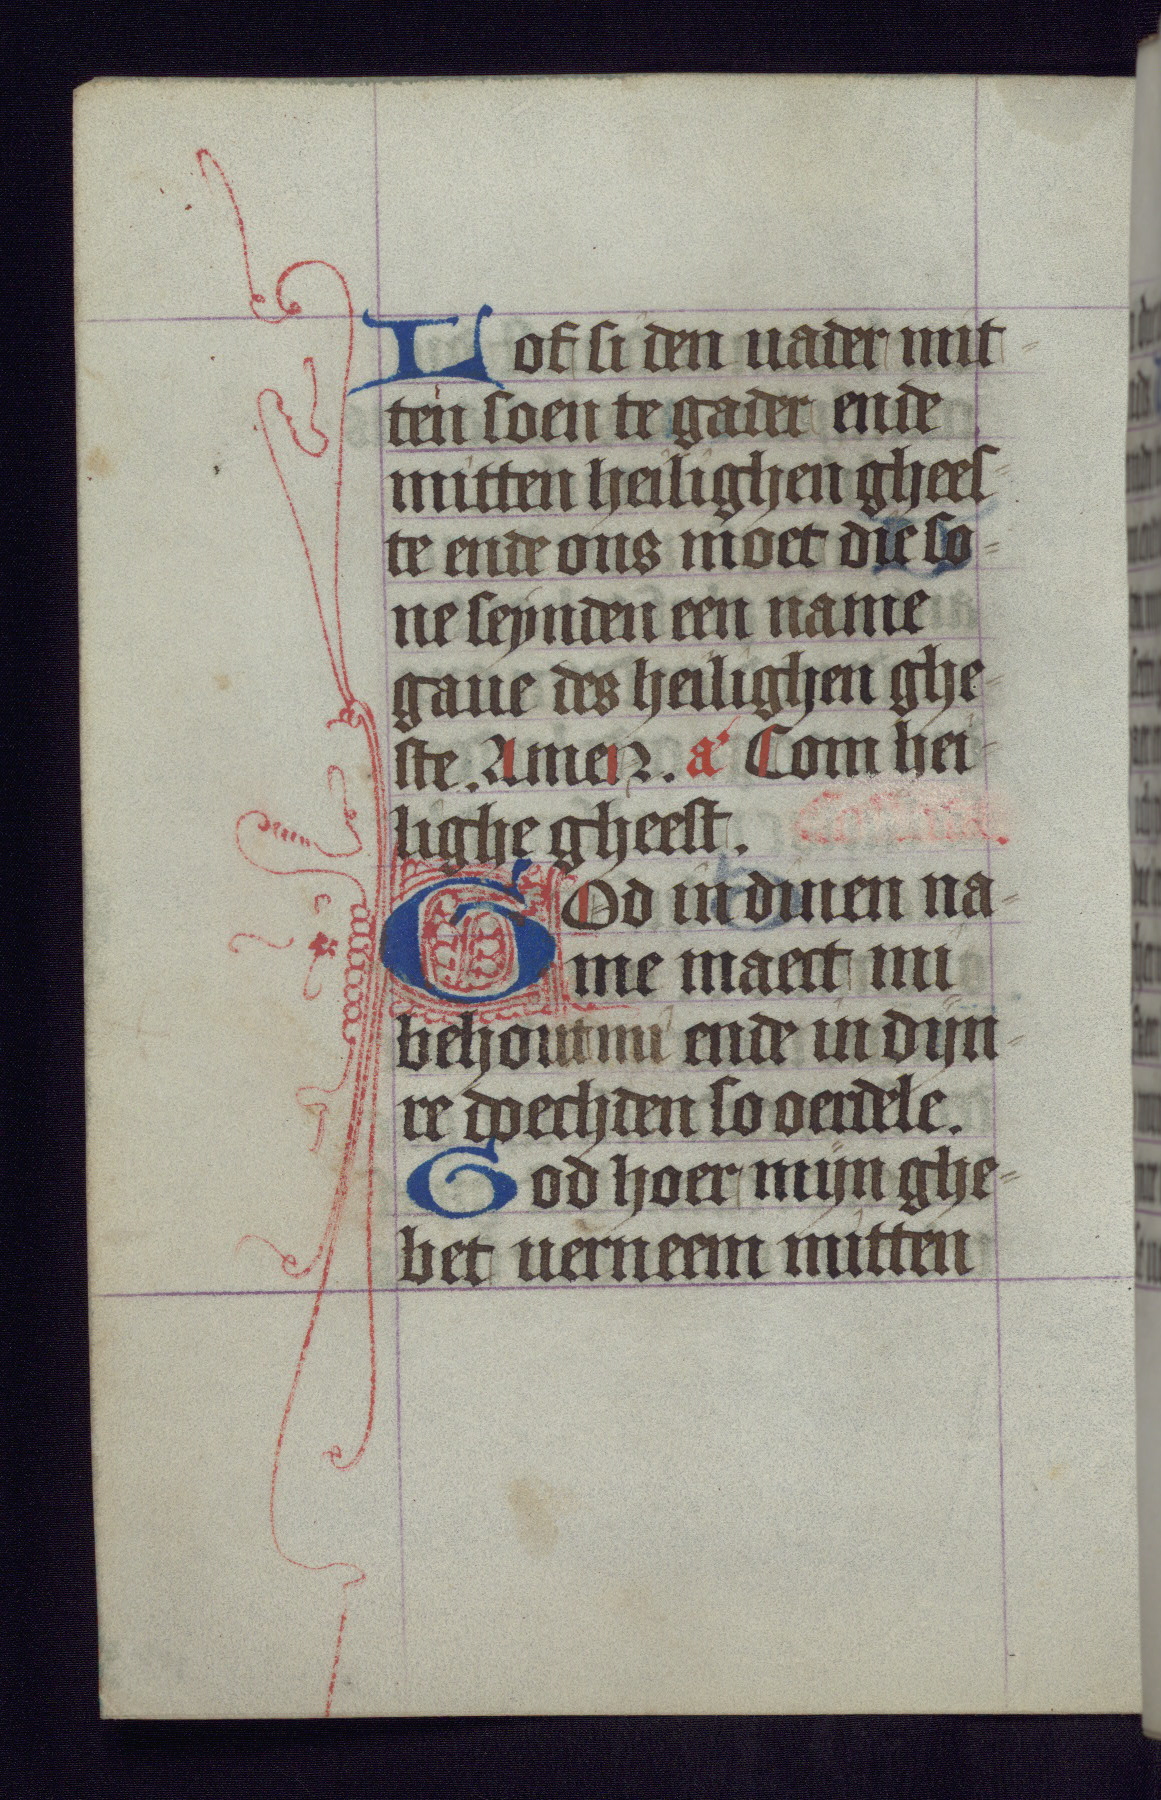 Lof si den uader mit
ten soen te gader ende
mitten heilighen ghees
te ende ons moet die so
ne seynden een name
gaue des heilighen ghe
ste. Amen. a Com hei
lighe gheest.
God in dinen na
me maect mi
behout mi ende in dijn
re doechden so oerdele.
God hoer mijn ghe
bet uerneem mitten